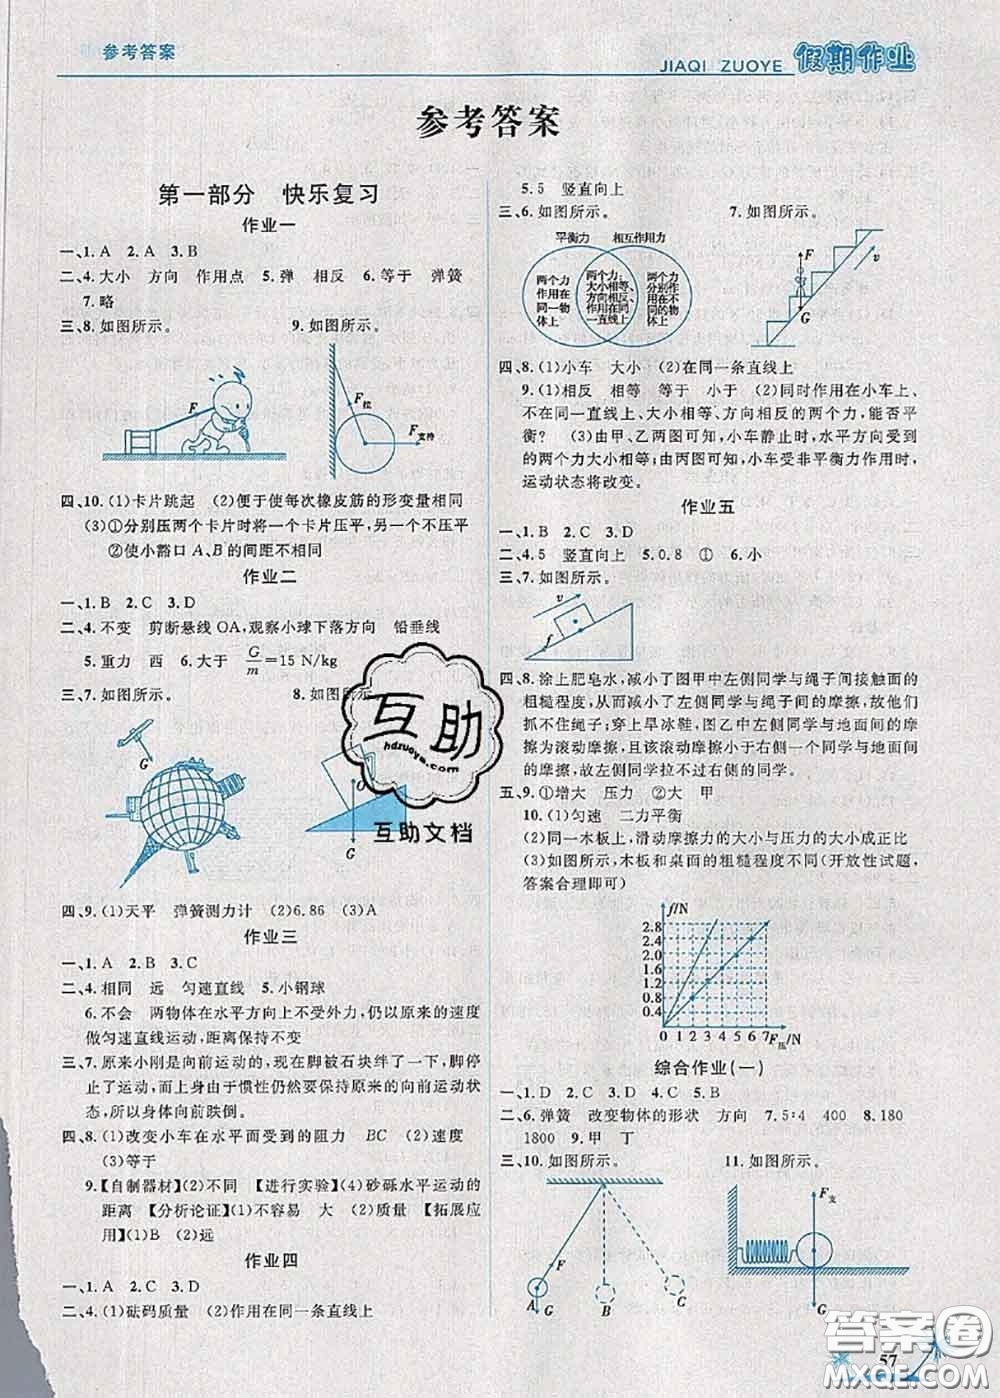 参考答案
JIAQI ZUOYE 假期作业
参考答案
第一部分 快乐复习
作业一
一、1. A 2. A 3. B
二、4. 大小 方向 作用点 5. 弹 相反 6. 等于 弹簧
7. 略
三、8. 如图所示。 9. 如图所示。
F
F拉
F支持
四、10. (1)卡片跳起 (2)便于使每次橡皮筋的形变量相同
(3)①分别压两个卡片时将一个卡片压平,另一个不压平
②使小豁口 A、B 的间距不相同
作业二
一、1. B 2. C 3. D
二、4. 不变 剪断悬线 OA,观察小球下落方向 铅垂线
5. 重力 西 6. 大于 G/m=15 N/kg
三、7. 如图所示。 8. 如图所示。
G
O
G
四、9. (1)天平 弹簧测力计 (2)6.86 (3)A
作业三
一、1. A 2. B 3. C
二、4. 相同 远 匀速直线 5. 小钢球
6. 不会 两物体在水平方向上不受外力,仍以原来的速度
做匀速直线运动,距离保持不变
三、7. 原来小刚是向前运动的,现在脚被石块绊了一下,脚停
止了运动,而上身由于惯性仍然要保持原来的向前运动状
态,所以身体向前跌倒。
四、8. (1)改变小车在水平而受到的阻力 BC (2)速度
(3)等于
9.【自制器材】(2)不同 【进行实验】(4)砂砾水平运动的
距离 【分析论证】(1)不容易 大 (2)质量 【拓展应
用】(1)B (2)远
作业四
一、1. A 2. C 3. D
二、4. (1)砝码质量 (2)作用在同一条直线上
5. 5 竖直向上
三、6. 如图所示。 7. 如图所示。
平衡力 相互作用力
两个力作用在同一物体上
两个力大小相等、方向相反、作用在同一直线上
两个力分别作用在不同的物体上
F
v
G
四、8. (1)小车 大小 (2)在同一条直线上
9. (1)相反 相等 等于 小于 (2)同时作用在小车上、
不在同一直线上、大小相等、方向相反的两个力,能否平
衡? (3)由甲、乙两图可知,小车静止时,水平方向受到
的两个力大小相等;由丙图可知,小车受非平衡力作用时,
运动状态将改变。
作业五
一、1. B 2. C 3. D
二、4. 5 竖直向上 5. 0.8 ① 6. 小
三、7. 如图所示。
v
f
四、8. 涂上肥皂水,减小了图甲中左侧同学与绳子间接触面的
粗糙程度,从而减小了左侧同学与绳子间的摩擦,故他们
抓不住绳子;穿上旱冰鞋,图乙中左侧同学与地面间的摩
擦为滚动摩擦,且该滚动摩擦小于右侧一个同学与地面间
的摩擦,故左侧同学拉不过右侧的同学。
五、9. ①增大 压力 ②大 甲
10. (1)匀速 二力平衡
(2)同一木板上,滑动摩擦力的大小与压力的大小成正比
(3)如图所示,木板和桌面的粗糙程度不同(开放性试题,
答案合理即可)
f/N
2.8
2.4
2.0
1.6
1.2
0.8
0.4
0 1 2 3 4 5 6 7 F压/N
综合作业(一)
一、1. D 2. C 3. D 4. C 5. B
二、6. 弹簧 改变物体的形状 方向 7. 5∶4 400 8. 180
1800 9. 甲 丁
三、10. 如图所示。 11. 如图所示。
F
A G B C
F支
G
57
互助
hdzuoye.com
互助文档
答案圈
MXQE.COM